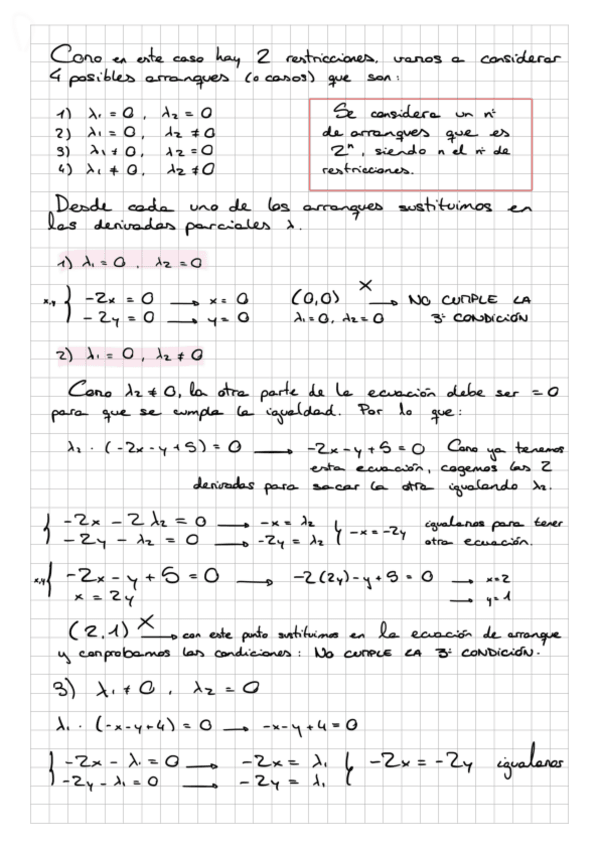 Como en este caso hay 2 restricciones, vamos a considerar
4 posibles arranques (o casos) que son:
1) λ₁ = 0 , λ₂ = 0
2) λ₁ = 0, λ₂ ≠ 0
3) λ₁ ≠ 0, λ₂ = 0
4) λ₁ ≠ 0, λ₂ ≠ 0
Se considera un nº
de arranques que es
2ⁿ, siendo n el nº de
restricciones.
Desde cada uno de los arranques sustituimos en
las derivadas parciales λ.
1) λ₁ = 0 , λ₂ = 0
x,y { -2x = 0 → x = 0 (0,0) X → NO CUMPLE LA
- 2y = 0 → y = 0 λ₁ = 0, λ₂ = 0 3ª CONDICIÓN
2) λ₁ = 0, λ₂ ≠ 0
Como λ₂ ≠ 0, la otra parte de la ecuación debe ser = 0
para que se cumpla la igualdad. Por lo que:
λ₂ · (-2x - y + 5) = 0 → -2x - y + 5 = 0 Como ya tenemos
esta ecuación, cogemos las 2
derivadas para sacar la otra igualando λ₂.
{ -2x - 2λ₂ = 0 → -x = λ₂ { -x = -2y igualamos para tener
-2y - λ₂ = 0 → -2y = λ₂ otra ecuación.
x,y { -2x - y + 5 = 0 → -2(2y) - y + 5 = 0 → x = 2
x = 2y → y = 1
(2,1) X → con este punto sustituimos en la ecuación de arranque
y comprobamos las condiciones: NO CUMPLE LA 3ª CONDICIÓN.
3) λ₁ ≠ 0 , λ₂ = 0
λ₁ · (-x - y + 4) = 0 → -x - y + 4 = 0
{ -2x - λ₁ = 0 → -2x = λ₁ { -2x = -2y igualamos
-2y - λ₁ = 0 → -2y = λ₁